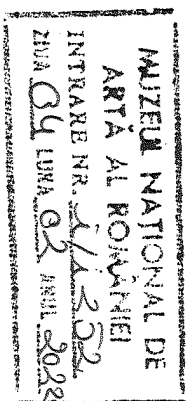 MUZEUL NAȚIONAL DE
ARTĂ AL ROMÂNIEI
INTRARE NR.
ZIUA 04 LUNA 02 ANUL 2022